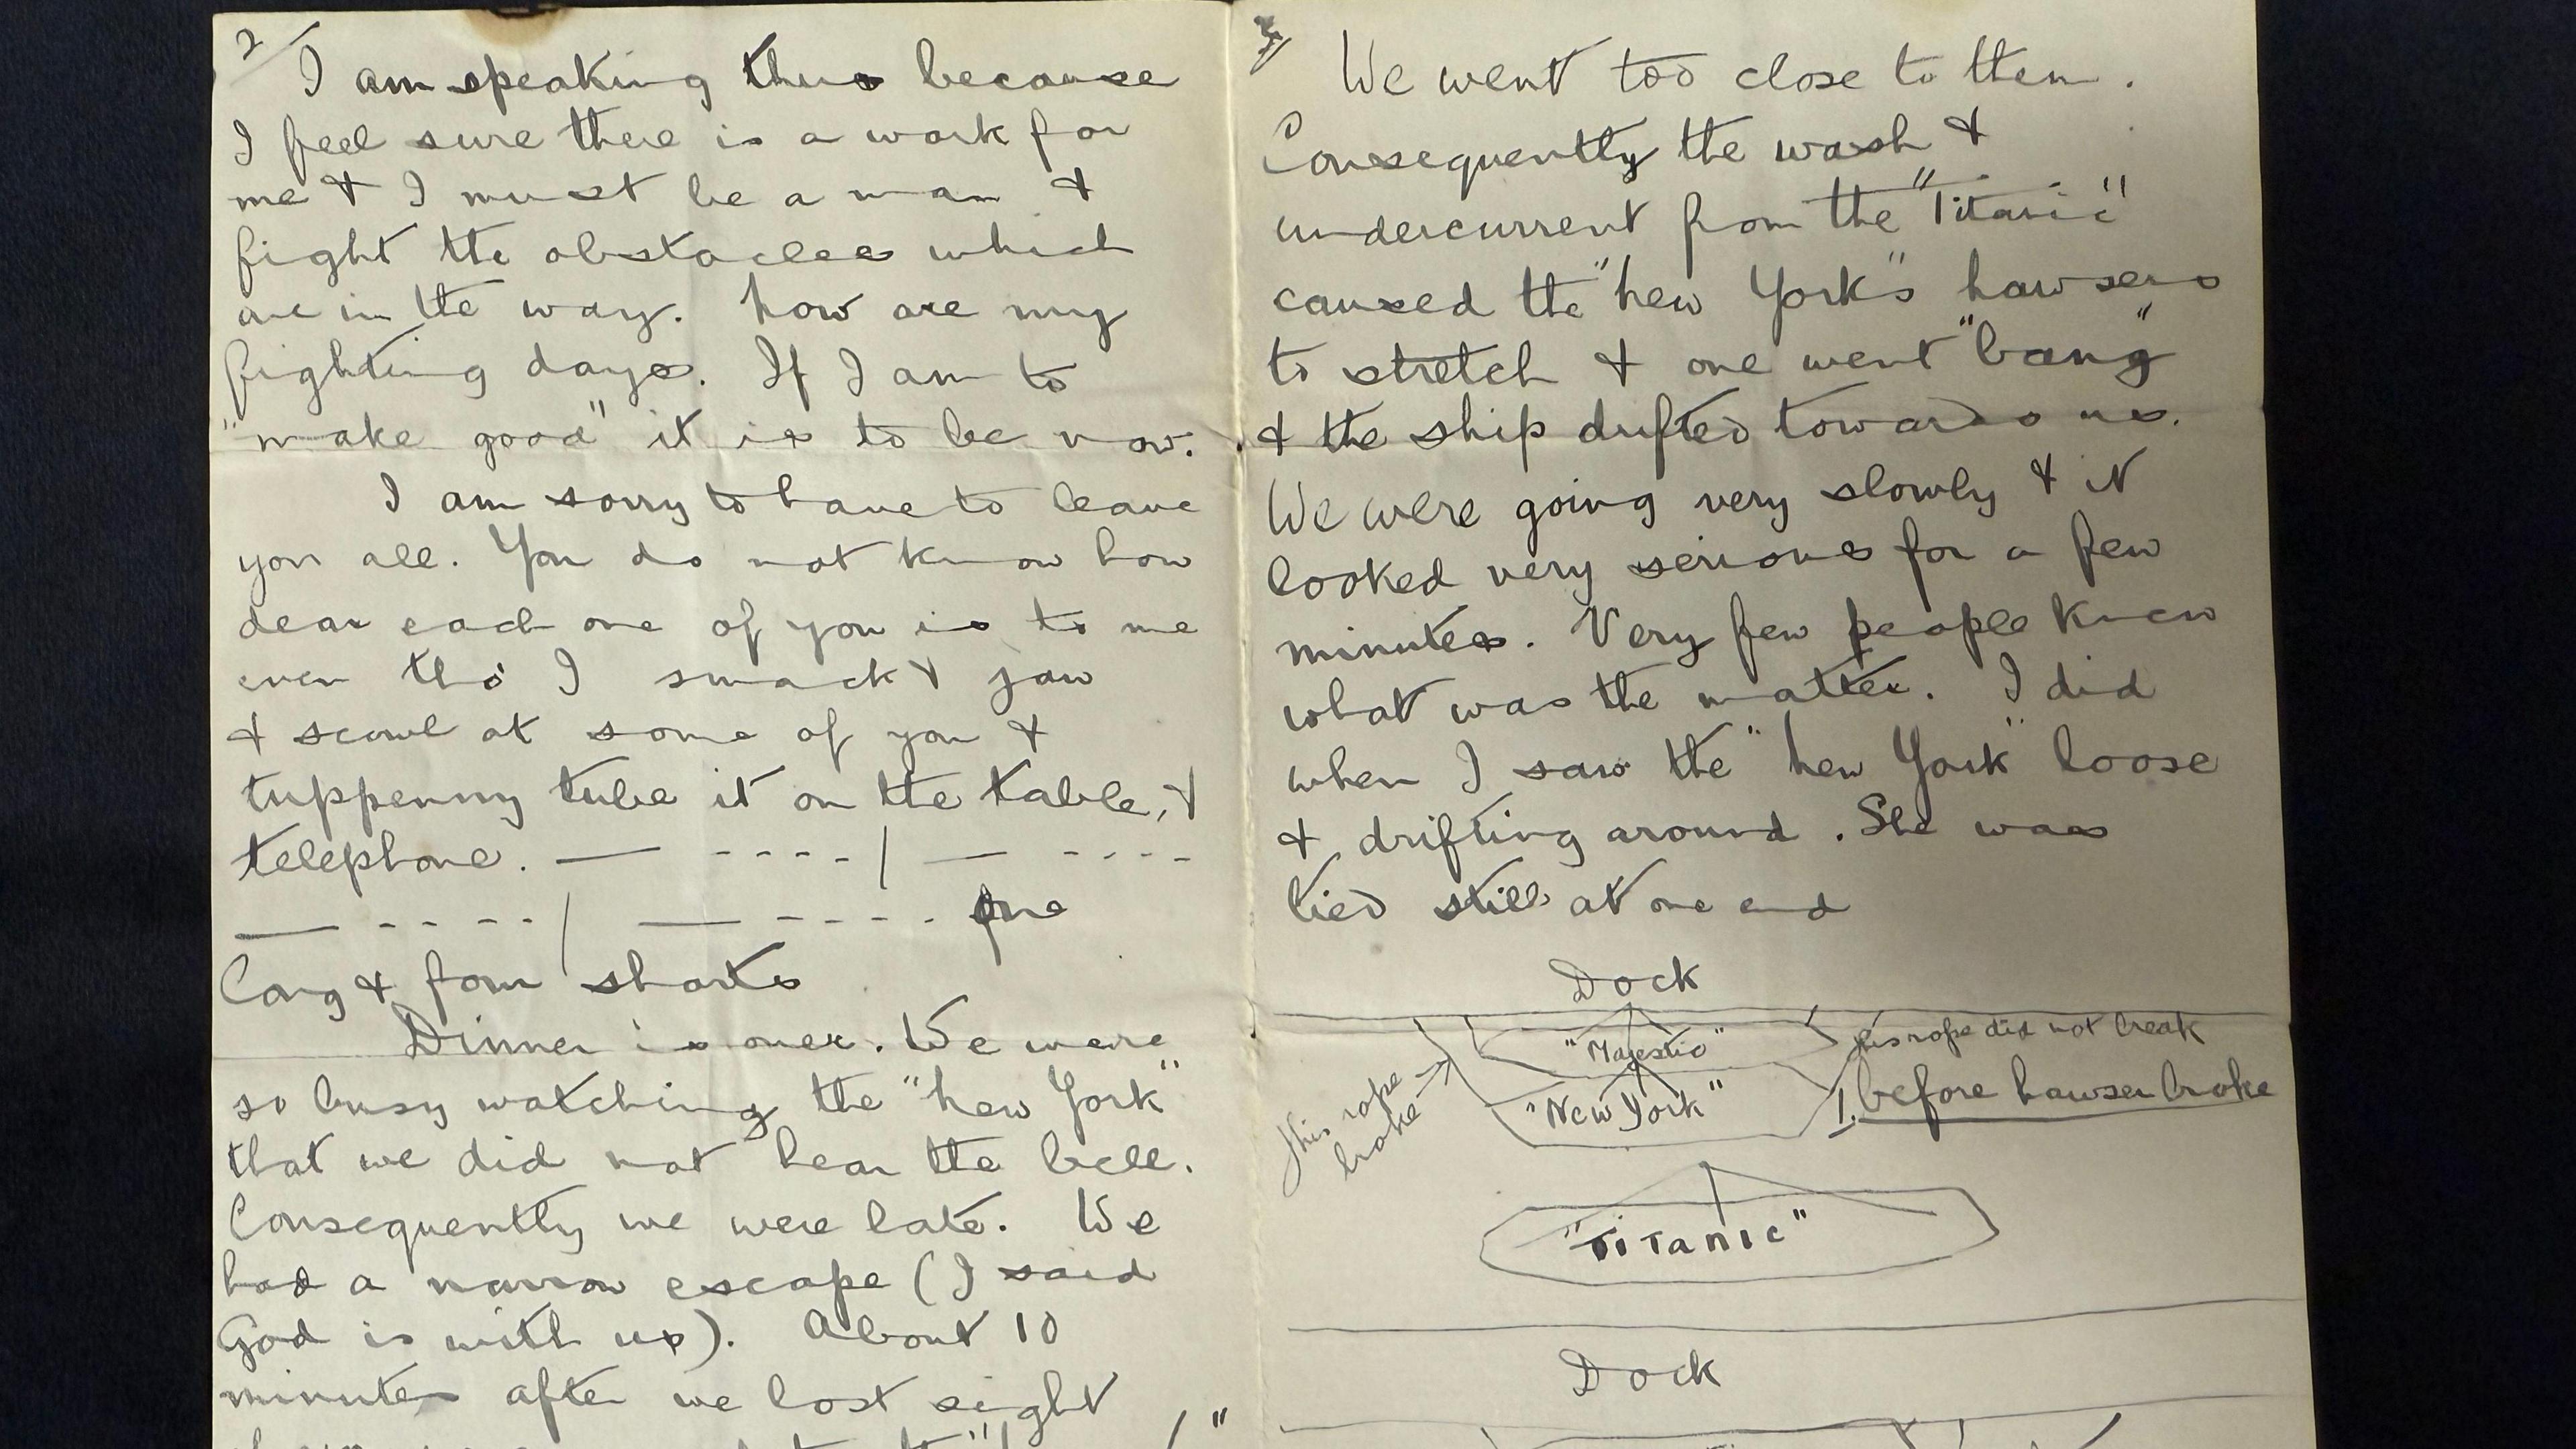 2/
I am speaking thus because
I feel sure there is a work for
me & I must be a man &
fight the obstacles which
are in the way. Now are my
fighting days. If I am to
"make good" it is to be now.
I am sorry to have to leave
you all. You do not know how
dear each one of you is to me
even tho' I smack & jaw
& scowl at some of you &
tuppenny tube it on the table, &
telephone. — - - - - / — - - - -
— - - - - / — - - - - . one
long & four shorts
Dinner is over. We were
so busy watching the "New York"
that we did not hear the bell.
Consequently we were late. We
had a narrow escape (I said
God is with us). About 10
minutes after we lost sight
3/
We went too close to them.
Consequently the wash &
undercurrent from the "Titanic"
caused the "New York's" hawsers
to stretch & one went "bang"
& the ship drifted towards us.
We were going very slowly & it
looked very serious for a few
minutes. Very few people knew
what was the matter. I did
when I saw the "New York" loose
& drifting around. She was
tied still at one end
Dock
"Majestic"
this rope did not break
this rope
broke →
"New York"
1. before hawser broke
"Titanic"
Dock